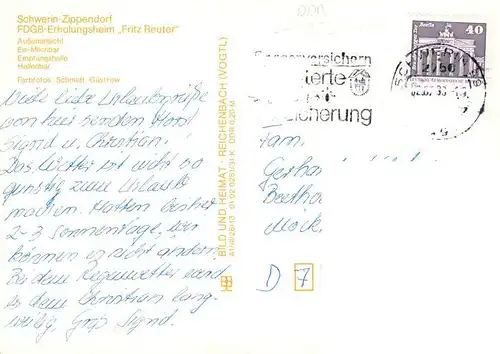 Schwerin-Zippendorf
FDGB-Erholungsheim „Fritz Reuter"
Außenansicht
Eis-Milchbar
Empfangshalle
Hallenbar
Farbfotos: Schmidt, Güstrow
Viele liebe Urlaubsgrüße
von hier senden Horst
Sigrid u. Christian.
Das Wetter ist nicht so
günstig zum Urlaub
machen. Hatten bisher
2-3 Sonnentage, wir
können es nicht ändern.
Bei dem Regenwetter wird
es dem Christian lang-
weilig. Gruß Sigrid.
BILD UND HEIMAT · REICHENBACH (VOGTL)
DDR 0,20 M
40
SCHWERIN
2756
ersichern
ierte
icherung
Fam.
Gerha
Beetho
Möck
D 7